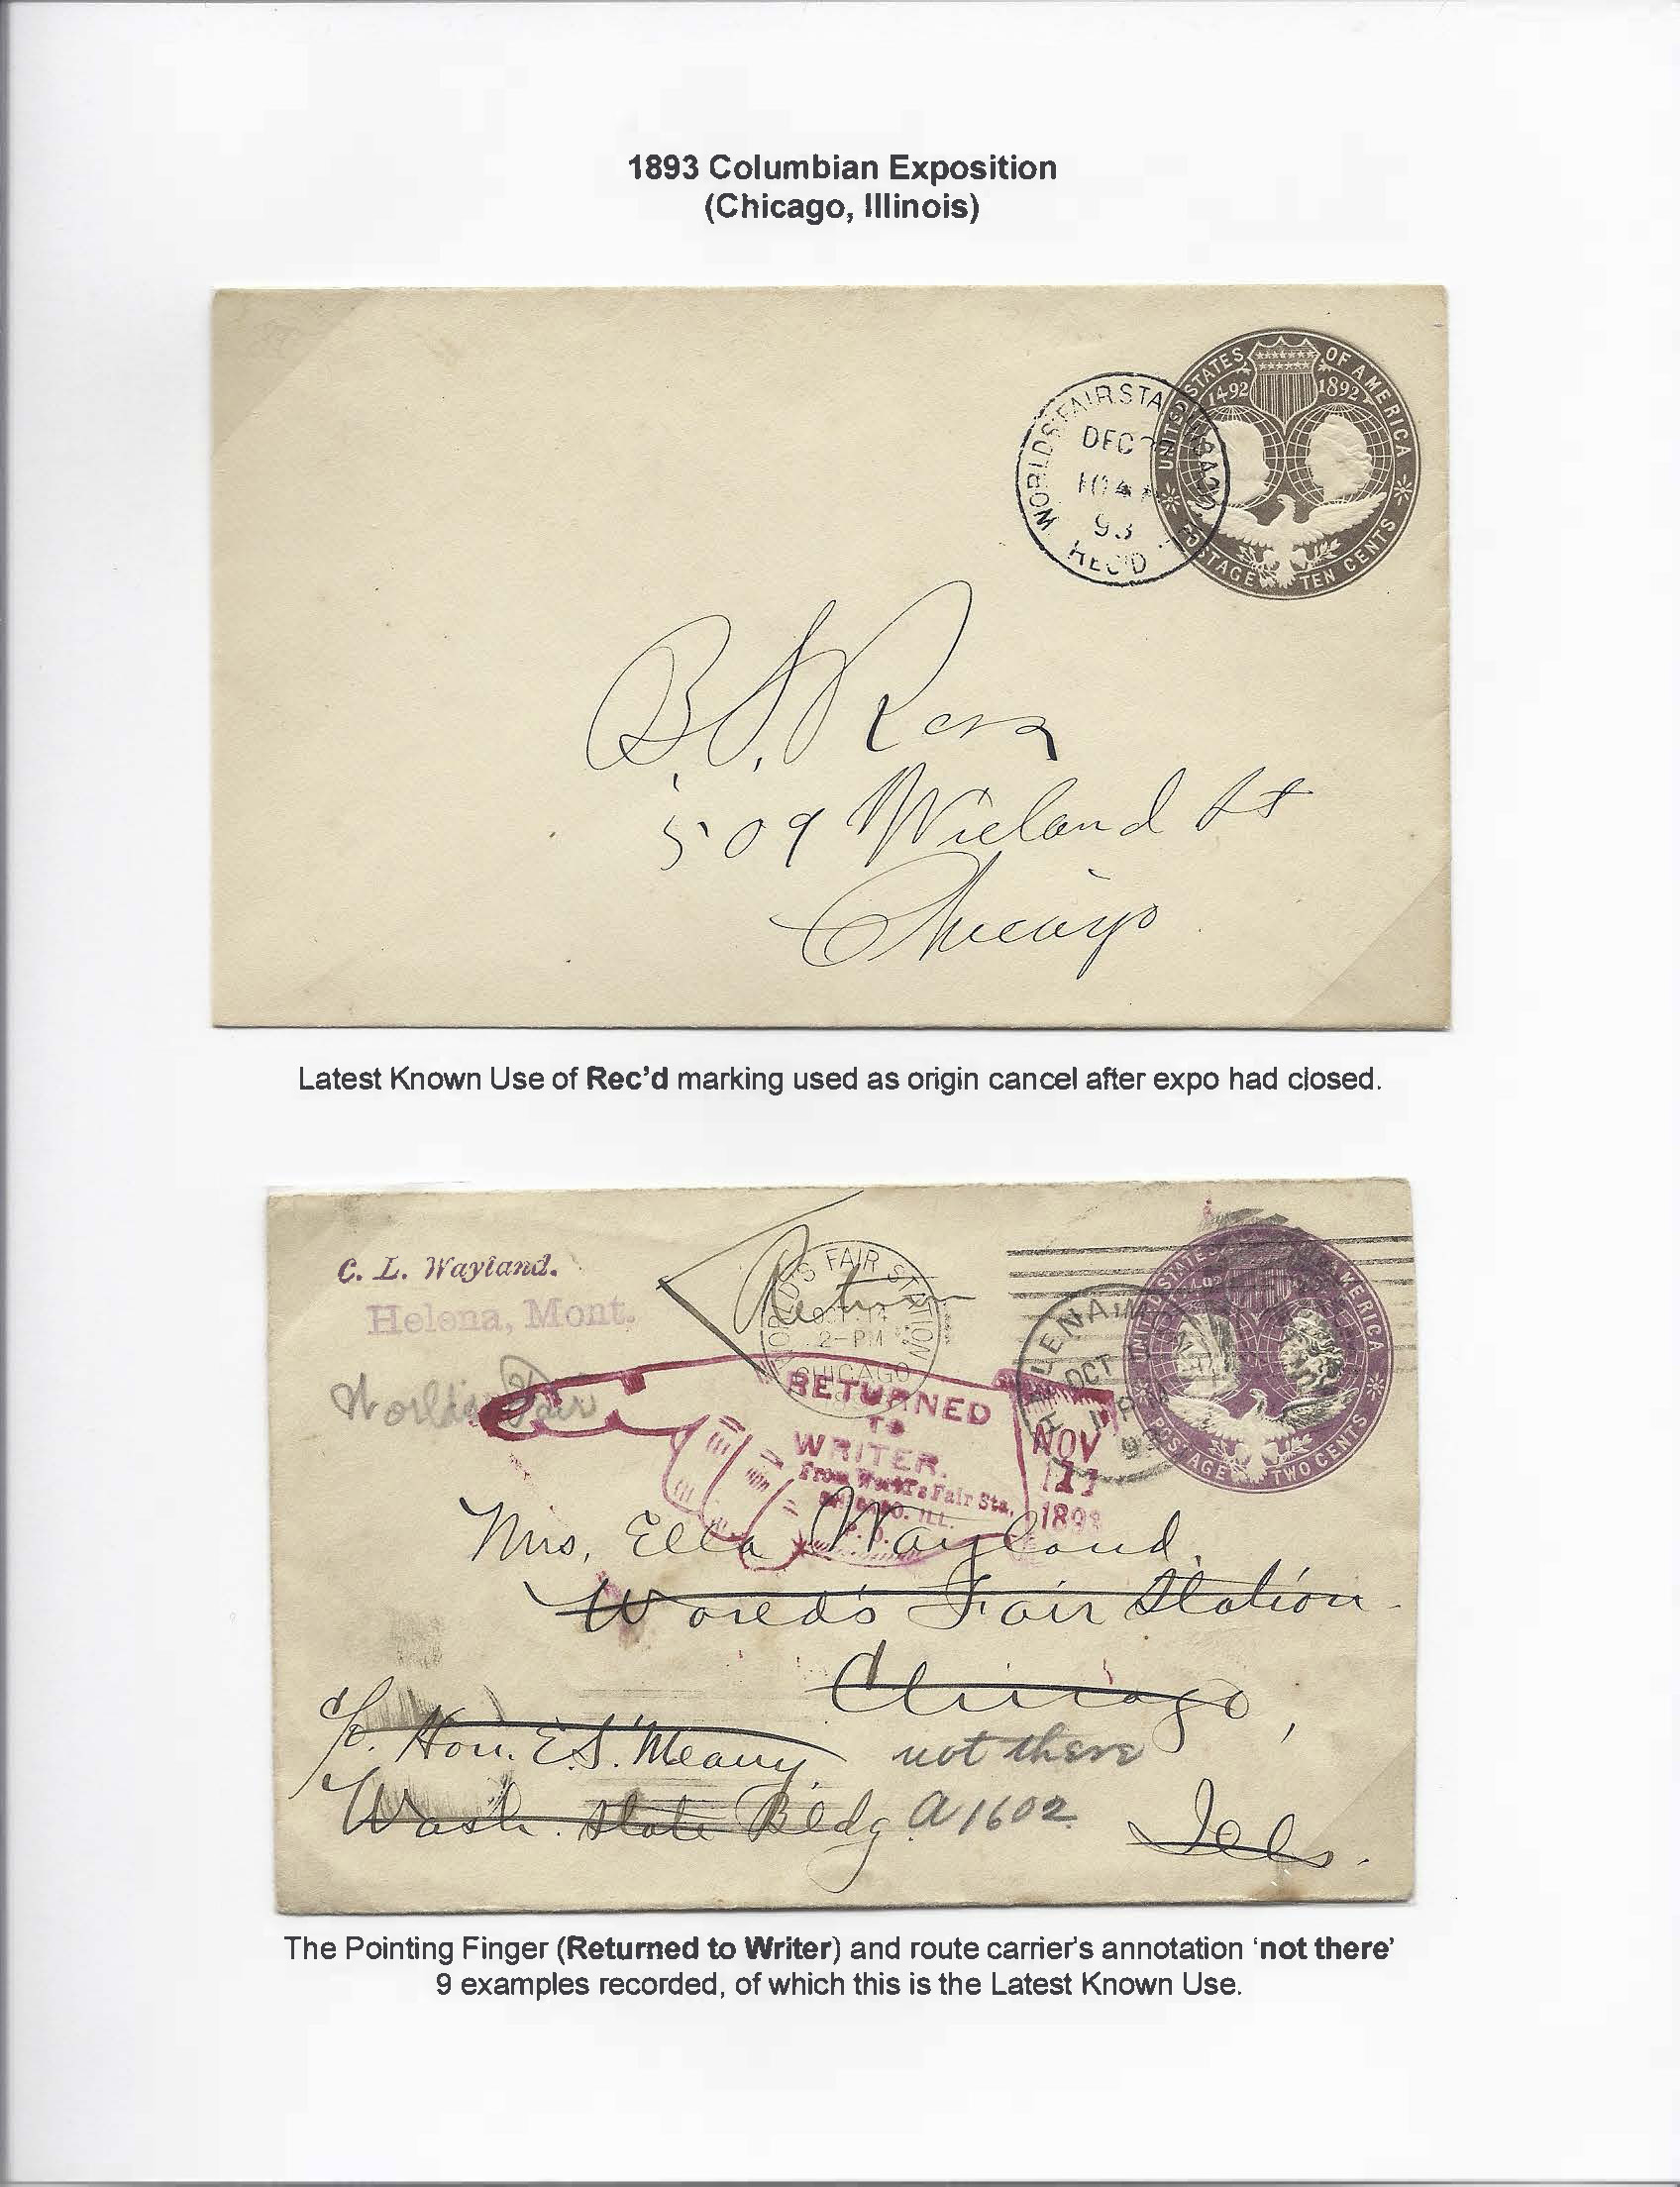 1893 Columbian Exposition
(Chicago, Illinois)
UNITED STATES OF AMERICA
1492 1892
POSTAGE TEN CENTS
WORLDS FAIR STA CHICAGO
DEC
10 A
93
REC'D
B. S. Ross
509 Wieland St
Chicago
Latest Known Use of Rec'd marking used as origin cancel after expo had closed.
C. L. Wayland.
Helena, Mont.
World's Fair
Return
WORLD'S FAIR STATION
OCT 14
2-PM
CHICAGO
HELENA, MONT
OCT
1 PM
93
UNITED STATES AMERICA
POSTAGE TWO CENTS
RETURNED
TO
WRITER.
From World's Fair Sta.
CHICAGO. ILL.
P. O.
NOV
1893
Mrs. Ella Wayland.
World's Fair Station
Chicago,
c/o. Hon. E. S. Meany.
not there
Wash. State Bldg.
A 1602
Ills.
The Pointing Finger (Returned to Writer) and route carrier's annotation 'not there'
9 examples recorded, of which this is the Latest Known Use.